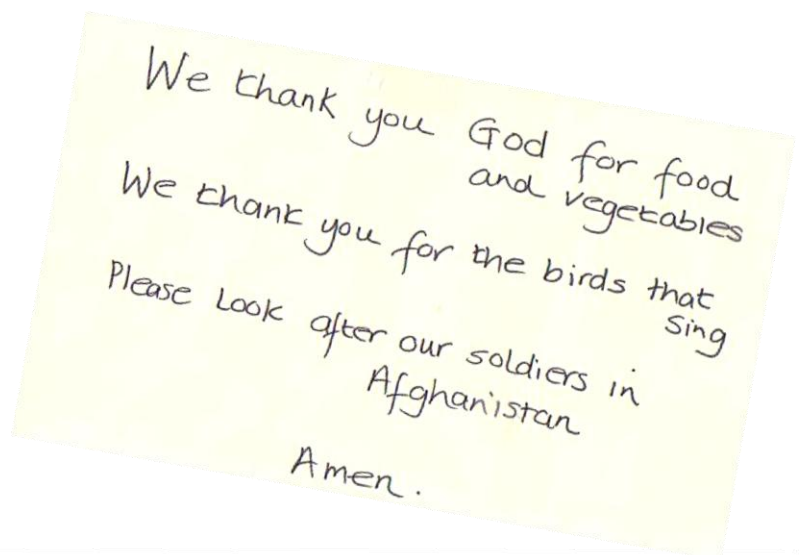 We thank you God for food
and vegetables
We thank you for the birds that
sing
Please Look after our soldiers in
Afghanistan
Amen.